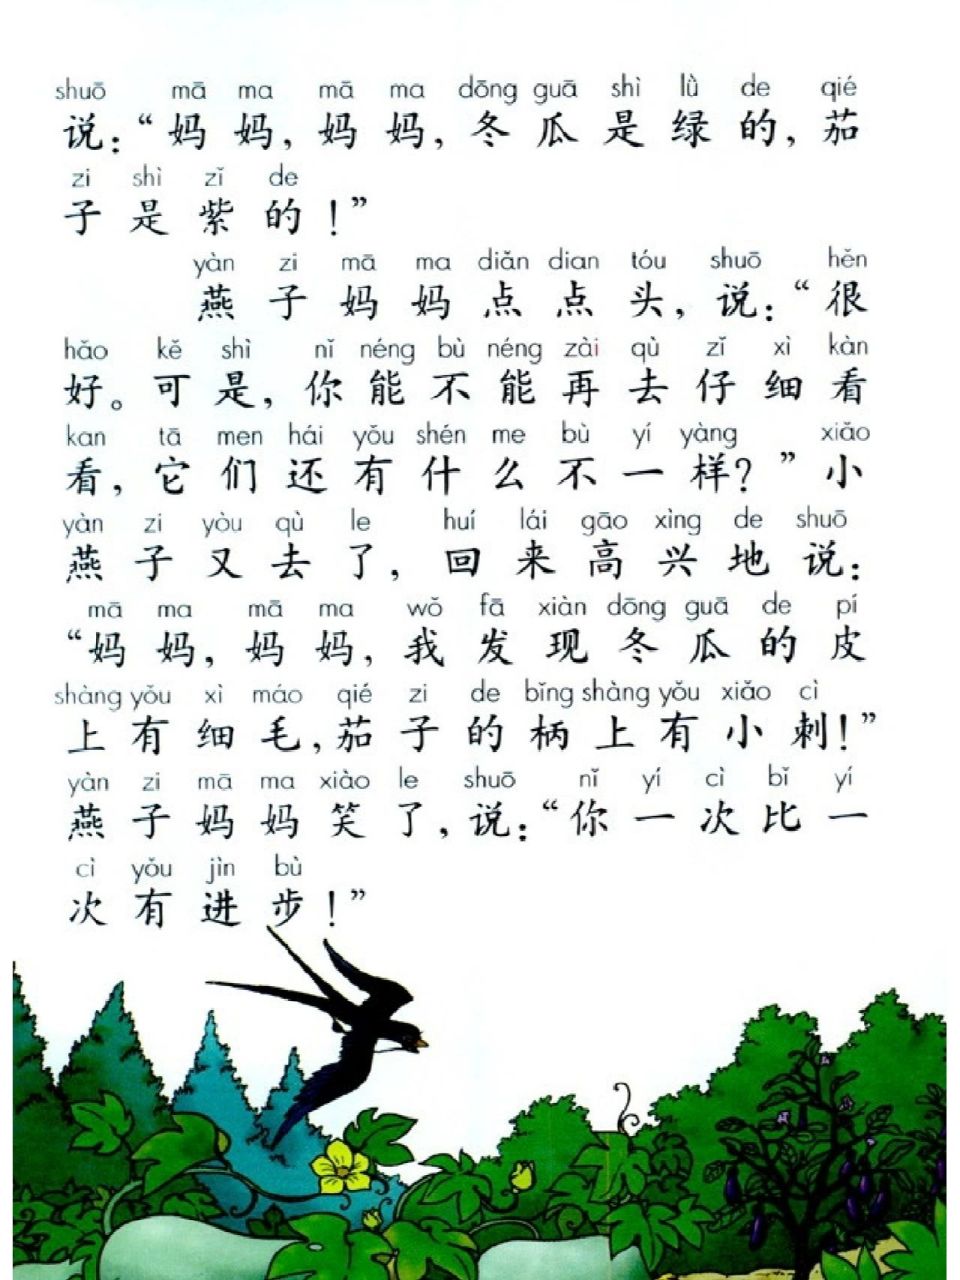 shuō mā ma mā ma dōng guā shì lǜ de qié
说：“妈妈，妈妈，冬瓜是绿的，茄
zi shì zǐ de
子是紫的！”
yàn zi mā ma diǎn dian tóu shuō hěn
燕子妈妈点点头，说：“很
hǎo kě shì nǐ néng bù néng zài qù zǐ xì kàn
好。可是，你能不能再去仔细看
kan tā men hái yǒu shén me bù yí yàng xiǎo
看，它们还有什么不一样？”小
yàn zi yòu qù le huí lái gāo xìng de shuō
燕子又去了，回来高兴地说：
mā ma mā ma wǒ fā xiàn dōng guā de pí
“妈妈，妈妈，我发现冬瓜的皮
shàng yǒu xì máo qié zi de bǐng shàng yǒu xiǎo cì
上有细毛，茄子的柄上有小刺！”
yàn zi mā ma xiào le shuō nǐ yí cì bǐ yí
燕子妈妈笑了，说：“你一次比一
cì yǒu jìn bù
次有进步！”